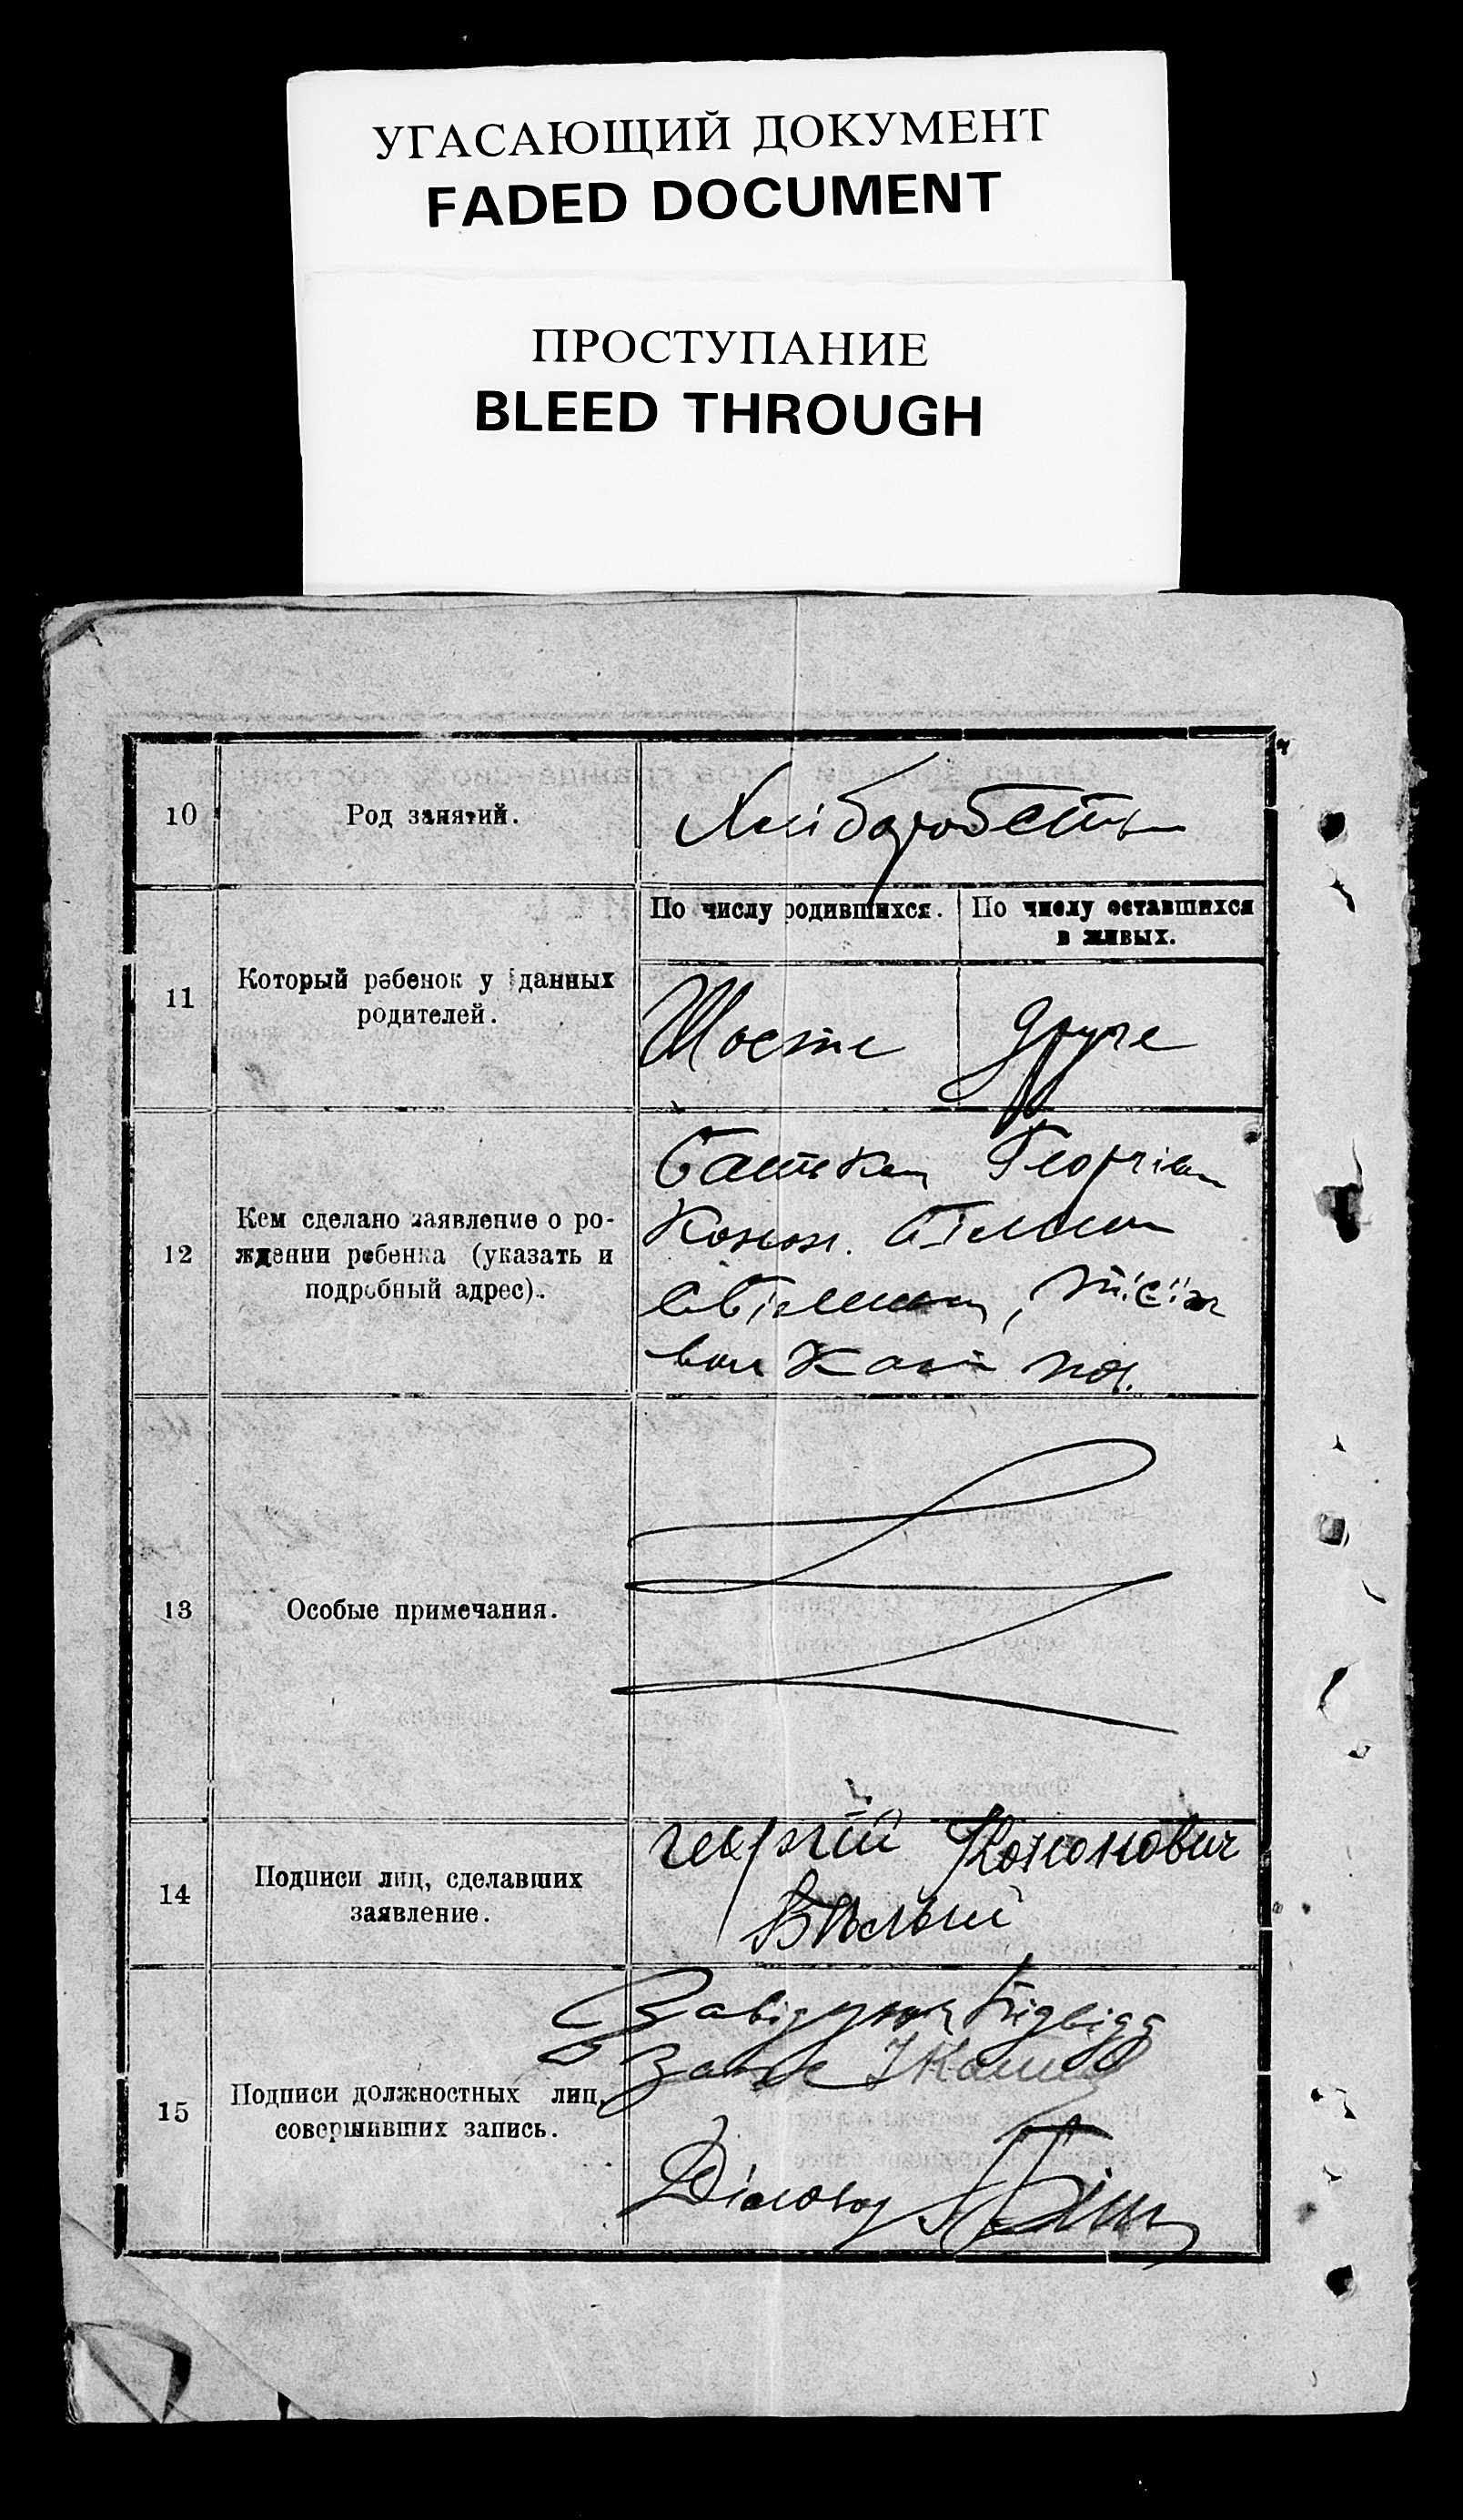 УГАСАЮЩИЙ ДОКУМЕНТ
FADED DOCUMENT
ПРОСТУПАНИЕ
BLEED THROUGH
10
Род занятий.
Хліборобств
11
Который ребенок у данных
родителей.
По числу родившихся.
По числу оставшихся
в живых.
Шосте
друге
12
Кем сделано заявление о ро-
ждении ребенка (указать и
подробный адрес).
Батьком Георгієм
Конон. Білим
13
Особые примечания.
14
Подписи лиц, сделавших
заявление.
Георгій Кононович
Бѣлый
15
Подписи должностных лиц,
совершивших запись.
Завідуюч Підвідд
Діловод